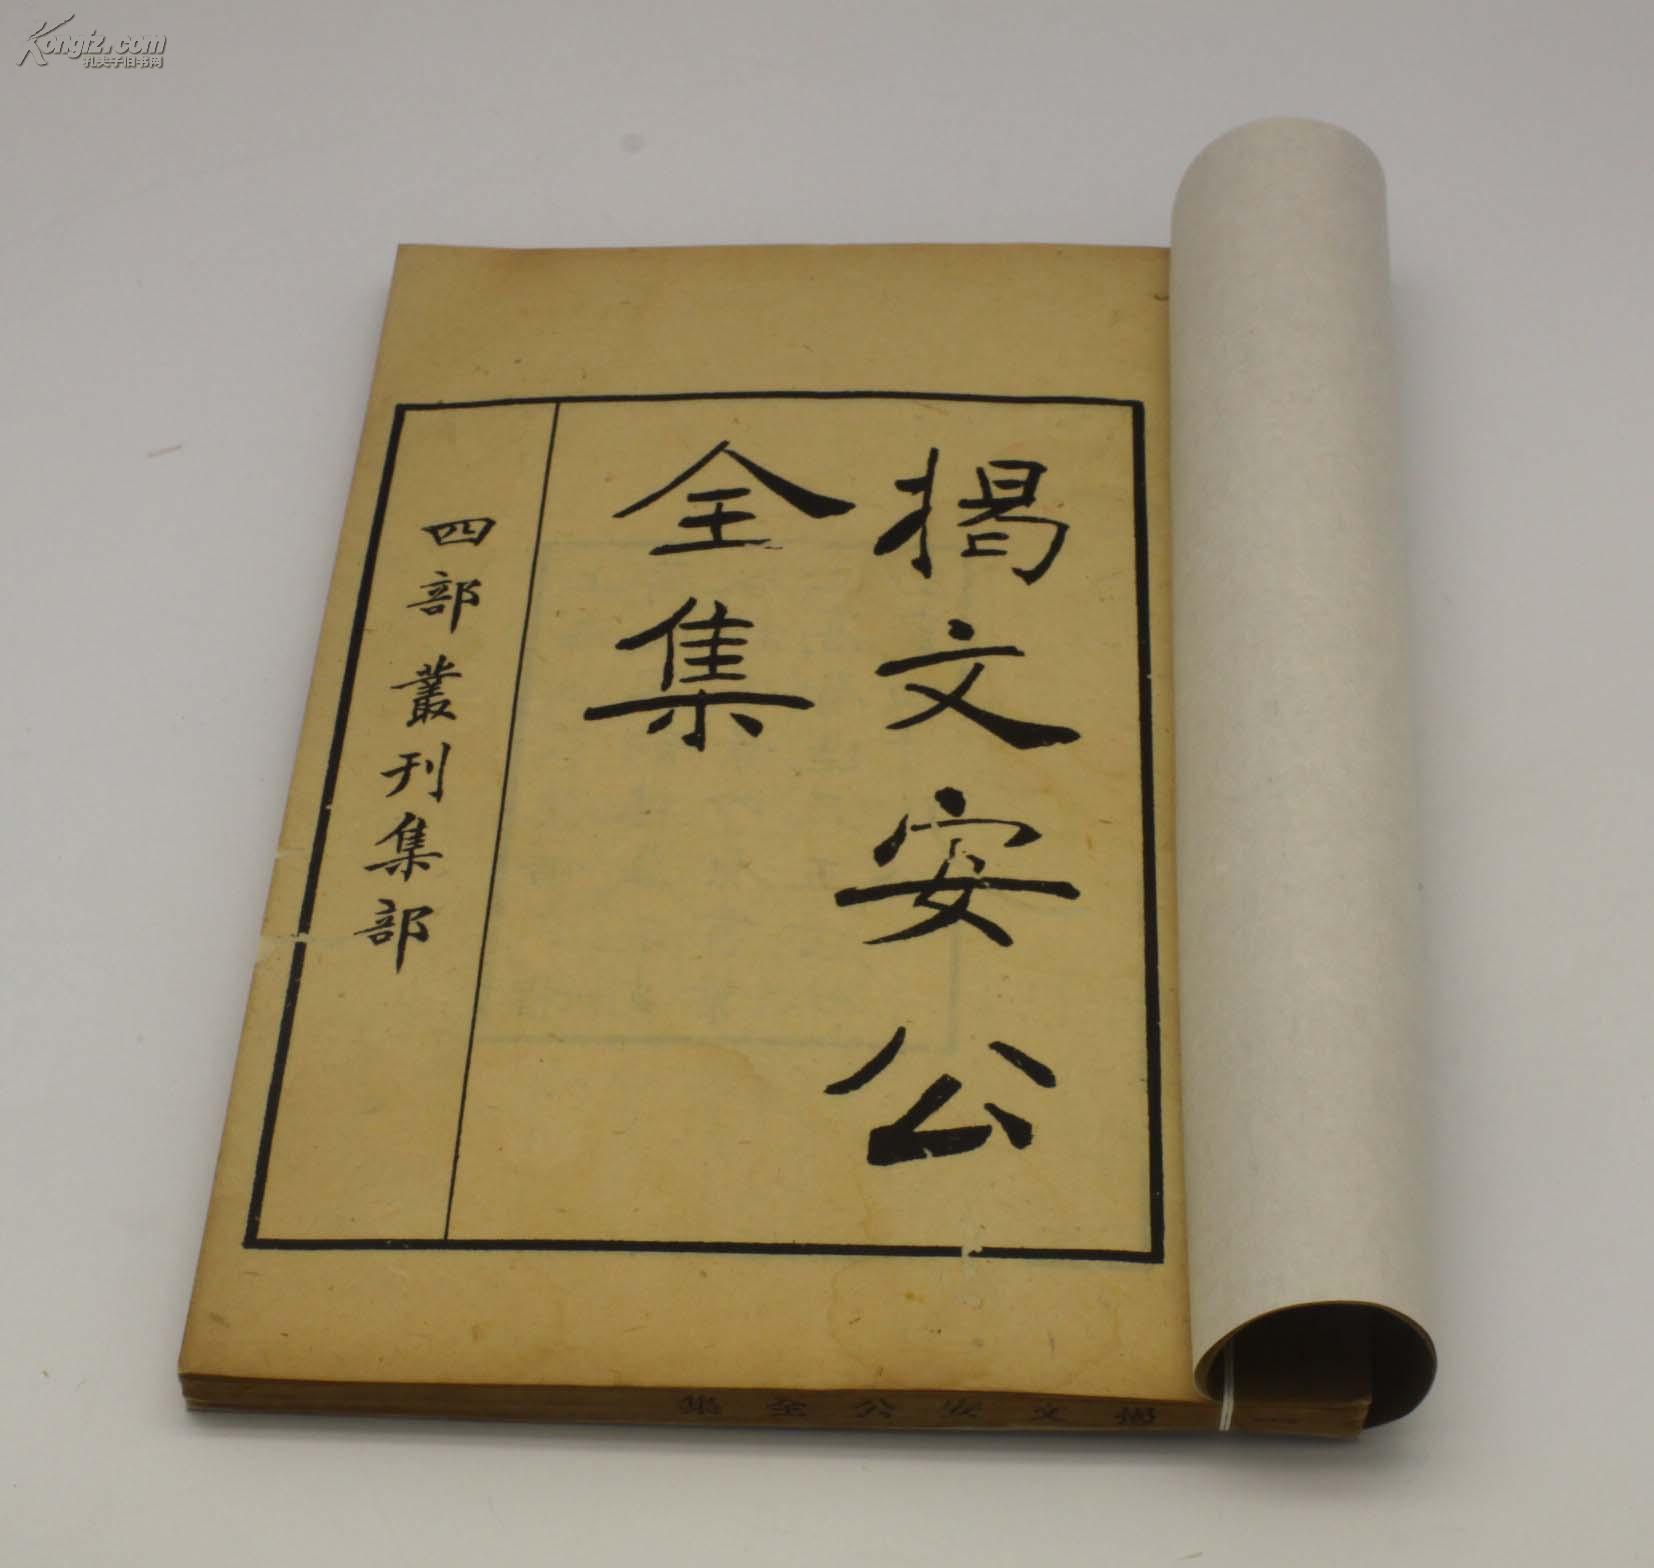 Kongfz.com
孔夫子旧书网
揭文安公
全集
四部叢刊集部
揭文安公全集
一